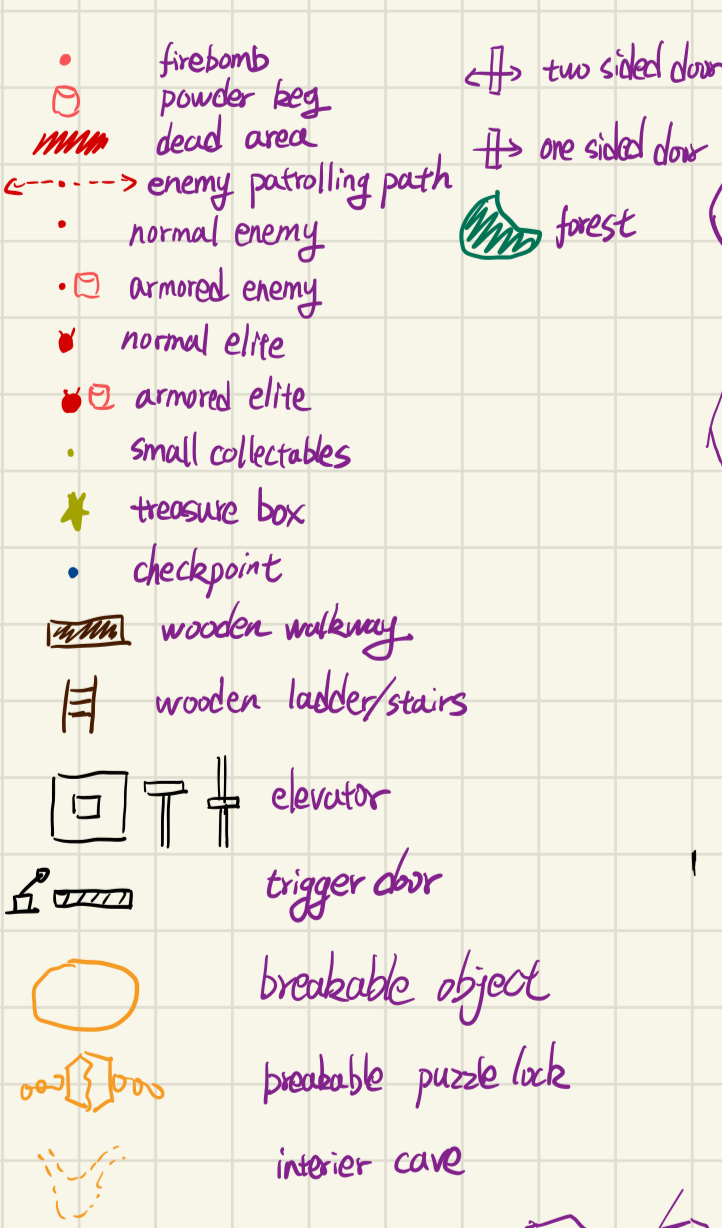 firebomb
powder keg
dead area
enemy patrolling path
normal enemy
armored enemy
normal elite
armored elite
small collectables
treasure box
checkpoint
wooden walkway
wooden ladder/stairs
elevator
trigger door
breakable object
breakable puzzle lock
interier cave
two sided door
one sided door
forest